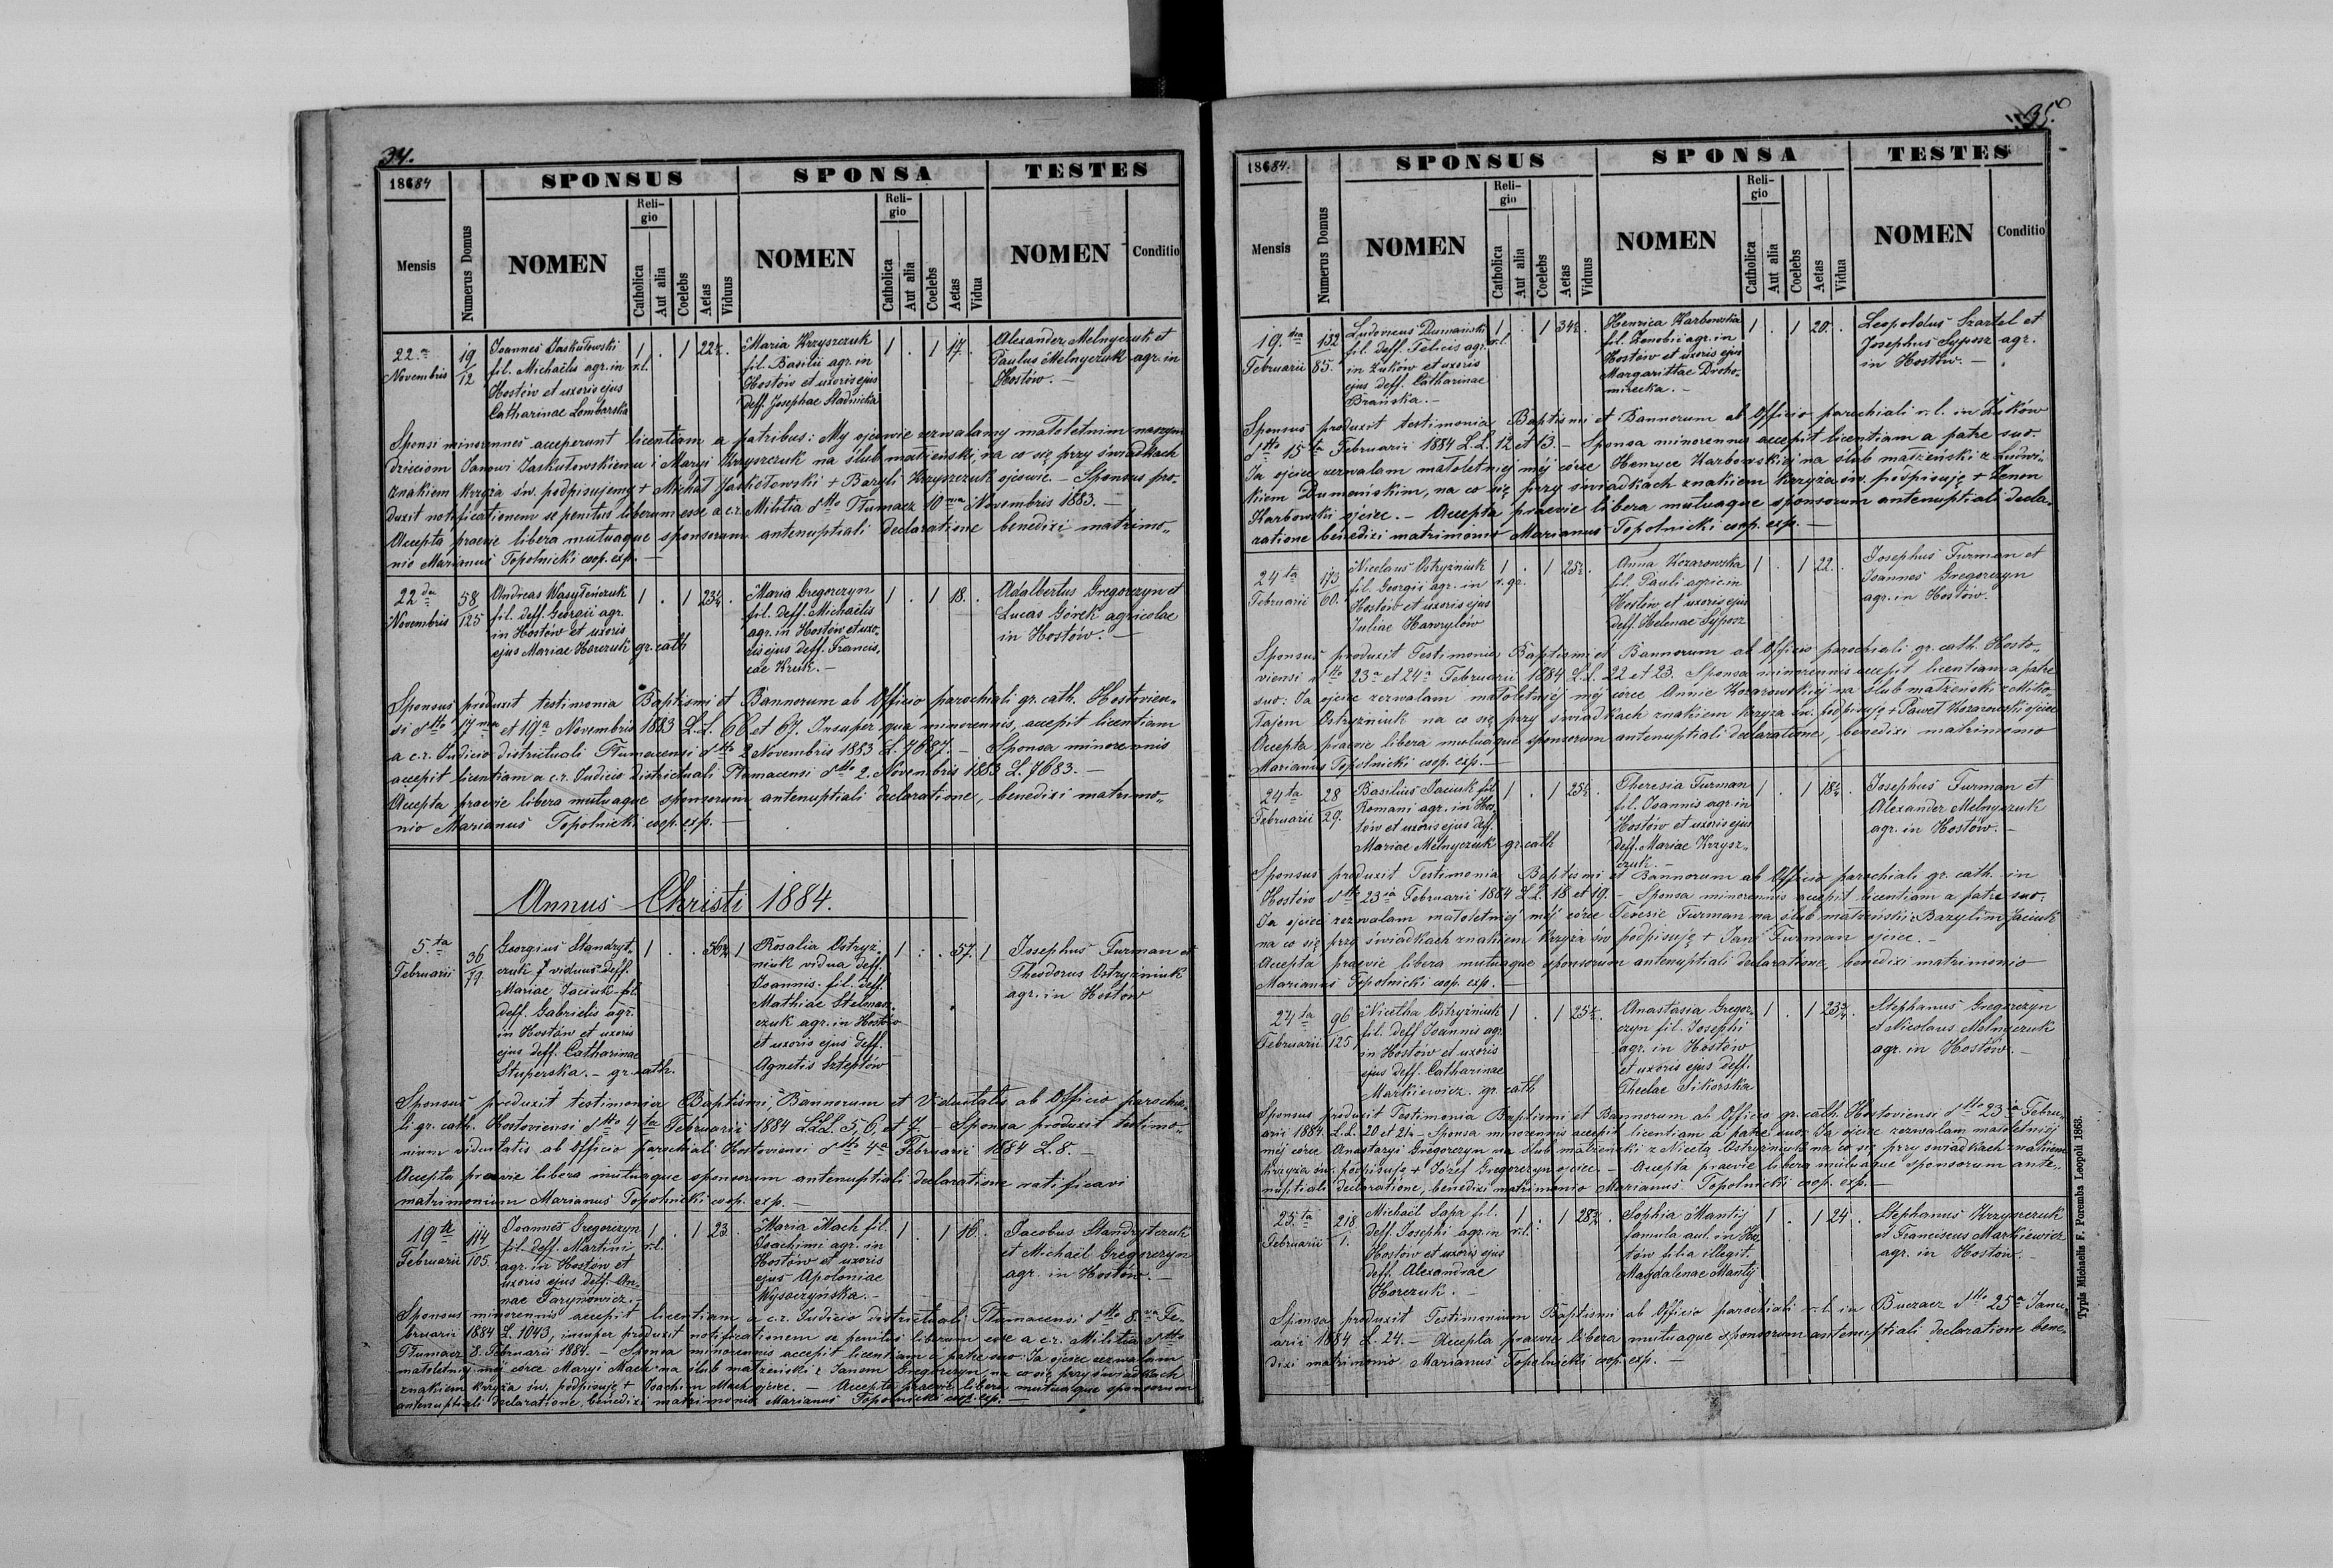 34.
1884
SPONSUS
SPONSA
TESTES
Mensis
Numerus Domus
NOMEN
Religio
Catholica
Aut alia
Coelebs
Aetas
Viduus
NOMEN
Religio
Catholica
Aut alia
Coelebs
Aetas
Vidua
NOMEN
Conditio
22a Novembris
19/12
Joannes Jaskułowski
fil. Michaëlis agr. in r.l.
Hostów et uxoris ejus
Catharinae Lombarska
1 . 1 22½ .
Maria Krzyszczuk
fil. Basilii agr. in
Hostów et uxoris ejus
deff. Josephae Stadnicka
1 . 1 17. .
Alexander Melnyczuk et
Paulus Melnyczuk agr. in
Hostów. —
Sponsi minorennes acceperunt licentiam a patribus: My ojcowie zezwalamy małoletnim naszym
dzieciom Janowi Jaskułowskiemu i Maryi Krzyszczuk na ślub małżeński, na co się przy świadkach
znakiem krzyża św. podpisujemy + Michał Jaskółowski + Bazyli Krzyszczuk ojcowie. — Sponsus pro-
duxit notificationem se penitus liberum esse a c.r. Militia dtto Tłumacz 10ma Novembris 1883. —
Accepta praevie libera mutuaque sponsorum antenuptiali declaratione benedixi matrimo-
nio Marianus Topolnicki coop. exp. —
22da Novembris
58/125
Andreas Wasyleńczuk
fil. deff. Georgii agr.
in Hostów et uxoris
ejus Mariae Horczuk gr. cath
1 . 1 23¼ .
Maria Gregorczyn
fil. deff. Michaëlis
agr. in Hostów et uxo-
ris ejus deff. Francis-
cae Kruk. —
1 . 1 18. .
Adalbertus Gregorczyn et
Lucas Górek agricolae
in Hostów. —
Sponsus produxit testimonia Baptismi et Bannorum ab Officio parochiali gr. cath. Hostovien-
si dtto 17ma et 19a Novembris 1883 L.L. 66 et 67. Insuper qua minorennis, accepit licentiam
a c.r. Judicio districtuali Tłumacensi dtto 2 Novembris 1883 L. 7687. — Sponsa minorennis
accepit licentiam a c.r. Judicio districtuali Tłumacensi dtto 2. Novembris 1883 L. 7683. —
Accepta praevie libera mutuaque sponsorum antenuptiali declaratione, benedixi matrimo-
nio Marianus Topolnicki coop. exp. —
Annus Christi 1884.
5.ta Februarii
36/79
Georgius Standryt-
czuk viduus deff.
Mariae Jaciuk fil.
deff. Gabrielis agr.
in Hostów et uxoris
ejus deff. Catharinae
Stuperska. — gr. cath.
1 . . 56½ 1
Rosalia Ostryż-
niuk vidua deff.
Joannis. fil. deff.
Mathiae Stelmasz-
czuk agr. in Hostów
et uxoris ejus deff.
Agnetis Szteptów
1 . . 57. 1
Josephus Furman et
Theodorus Ostryżniuk
agr. in Hostów
Sponsus produxit testimonia Baptismi, Bannorum et Viduitatis ab Officio parochia-
li gr. cath. Hostoviensi dtto 4ta Februarii 1884 L.L.L. 5, 6, et 7. — Sponsa produxit testimo-
nium viduitatis ab Officio parochiali Hostoviensi dtto 4a Februarii 1884 L. 8. —
Accepta praevie libera mutuaque sponsorum antenuptiali declaratione ratificavi
matrimonium Marianus Topolnicki coop. exp. —
19ta Februarii
114/105.
Joannes Gregorczyn
fil. deff. Martini r.l.
agr. in Hostów et
uxoris ejus deff. An-
nae Tarynowicz. —
1 . 1 23. .
Maria Mach fil.
Joachimi agr. in
Hostów et uxoris
ejus Apoloniae
Wysoczynska. —
1 . 1 16. .
Jacobus Standrytczuk
et Michaël Gregorczyn
agr. in Hostów. —
Sponsus minorennis accepit licentiam a c.r. Judicio districtuali Tłumacensi dtto 8.va Fe-
bruarii 1884 L. 1043, insuper produxit notificationem se penitus liberum esse a c.r. Militia dtto
Tłumacz 8. Februarii 1884. — Sponsa minorennis accepit licentiam a patre suo: Ja ojciec zezwalam
małoletniej mej córce Maryi Mach na ślub małżeński z Janem Gregorczyn, na co się przy świadkach
znakiem krzyża św. podpisuję + Joachim Mach ojciec. — Accepta praevie libera mutuaque sponsorum
antenuptiali declaratione, benedixi matrimonio Marianus Topolnicki coop. exp. —
35.
1884.
SPONSUS
SPONSA
TESTES
Mensis
Numerus Domus
NOMEN
Religio
Catholica
Aut alia
Coelebs
Aetas
Viduus
NOMEN
Religio
Catholica
Aut alia
Coelebs
Aetas
Vidua
NOMEN
Conditio
19. Februarii
132/85.
Ludovicus Dumański
fil. deff. Felicis agr. r.l.
in Żuków et uxoris
ejus deff. Catharinae
Brańska. —
1 . 1 34½ .
Henrica Karbowska
fil. Zenobii agr. in
Hostów et uxoris ejus
Margarittae Droho-
mirecka. —
1 . 1 20. .
Leopoldus Szartel et
Josephus Syposz agr.
in Hostów. —
Sponsus produxit testimonia Baptismi et Bannorum ab Officio parochiali r.l. in Żuków
dtto 15ta Februarii 1884 L.L. 12 et 13. — Sponsa minorennis accepit licentiam a patre suo.
Ja ojciec zezwalam małoletniej mej córce Henryce Karbowskiej na ślub małżeński z Ludwi-
kiem Dumańskim, na co się przy świadkach znakiem krzyża św. podpisuję + Zenon
Karbowski ojciec. — Accepta praevie libera mutuaque sponsorum antenuptiali decla-
ratione benedixi matrimonio Marianus Topolnicki coop. exp. —
24ta Februarii
173/60.
Nicolaus Ostryżniuk
fil. Georgii agr. in r. gr.
Hostów et uxoris ejus
Juliae Hawrylów
1 . 1 25½ .
Anna Kozarowska
fil. Pauli agric. in
Hostów et uxoris ejus
deff. Helenae Syposz
1 . 1 22. .
Josephus Furman et
Joannes Gregorczyn
agr. in Hostów.
Sponsus produxit Testimonia Baptismi et Bannorum ab Officio parochiali gr. cath. Hosto-
viensi dtto 23a et 24a Februarii 1884 L.L. 22 et 23. Sponsa minorennis accepit licentiam a patre
suo: Ja ojciec zezwalam małoletniej mej córce Annie Kozarowskiej na ślub małżeński z Miko-
łajem Ostryżniuk na co się przy świadkach znakiem krzyża św. podpisuję + Paweł Kozarowski ojciec
Accepta praevie libera mutuaque sponsorum antenuptiali declaratione, benedixi matrimonio
Marianus Topolnicki coop. exp. —
24ta Februarii
28/29.
Basilius Jaciuk fil.
Romani agr. in Hos-
tów et uxoris ejus deff.
Mariae Melnyczuk gr. cath
1 . 1 25½ .
Theresia Furman
fil. Joannis agr. in
Hostów et uxoris ejus
deff. Mariae Krzysz-
czuk. —
1 . 1 18¼ .
Josephus Furman et
Alexander Melnyczuk
agr. in Hostów. —
Sponsus produxit Testimonia Baptismi et Bannorum ab Officio parochiali gr. cath. in
Hostów dtto 23ia Februarii 1884 L.L. 18 et 19. — Sponsa minorennis accepit licentiam a patre suo:
Ja ojciec zezwalam małoletniej mej córce Teresie Furman na ślub małżeński z Bazylim Jaciuk
na co się przy świadkach znakiem krzyża św. podpisuję + Jan Furman ojciec. —
Accepta praevie libera mutuaque sponsorum antenuptiali declaratione, benedixi matrimonio
Marianus Topolnicki coop. exp. —
24ta Februarii
96/125
Nicetha Ostryżniuk
fil. deff Joannis agr.
in Hostów et uxoris
ejus deff. Catharinae
Markiewicz. gr. cath
1 . 1 25½ .
Anastasia Gregor-
czyn fil. Josephi
agr. in Hostów
et uxoris ejus deff.
Theclae Sikorska
1 . 1 23¾ .
Stephanus Gregorczyn
et Nicolaus Melnyczuk
agr. in Hostów. —
Sponsus produxit Testimonia Baptismi et Bannorum ab Officio gr. cath. Hostoviensi dtto 23ia Febru-
arii 1884. L.L. 20 et 21. — Sponsa minorennis accepit licentiam a patre suo: Ja ojciec zezwalam małoletniej
mej córce Anastazyi Gregorczyn na ślub małżeński z Nicetą Ostryżniuk na co się przy świadkach znakiem
krzyża św. podpisuję + Józef Gregorczyn ojciec. — Accepta praevie libera mutuaque sponsorum ante-
nuptiali declaratione, benedixi matrimonio Marianus Topolnicki coop. exp. —
25.ta Februarii
218/1.
Michaël Sapa fil.
deff. Josephi agr. in r.l.
Hostów et uxoris ejus
deff. Alexandrae
Horczuk. —
1 . 1 28¾ .
Sophia Mantij
famula aul. in Hos-
tów filia illegit.
Magdalenae Mantij
1 . 1 24 .
Stephanus Krzyszczuk
et Franciscus Markiewicz
agr. in Hostów. —
Sponsa produxit Testimonium Baptismi ab Officio parochiali r.l. in Buczacz dtto 25a Janu-
arii 1884 L. 24. — Accepta praevie libera mutuaque sponsorum antenuptiali declaratione bene-
dixi matrimonio Marianus Topolnicki coop. exp. —
Typis Michaelis F. Poremba Leopoli 1863.